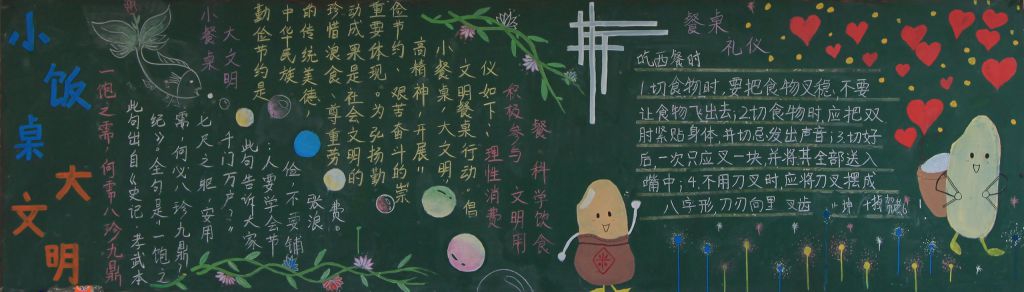 小饭桌
大文明
一饱之需,何需八珍九鼎
此句出自《史记·孝武本
纪》。全句是"一饱之
需,何必八珍九鼎?
七尺之躯,安用
千门万户?"
此句告诉大家
:人要学会节
俭,不要铺
张浪
费。
小餐桌
大文明
勤俭节约是
中华民族
的传统美德
珍惜浪食、尊重劳
动成果是社会文明的
重要体现。为弘扬勤
俭节约、艰苦奋斗的崇
高精神,开展"
小餐桌,大文明
文明餐桌行动。倡
仪如下:
理性消费
积极参与 文明用
餐,科学饮食
餐桌
礼仪
吃西餐时
1.切食物时,要把食物叉稳,不要
让食物飞出去;2.切食物时应把双
肘紧贴身体,并切忌发出声音;3.切好
后一次只应叉一块,并将其全部送入
嘴中;4.不用刀叉时,应将刀叉摆成
八字形,刀刃向里 叉齿
米